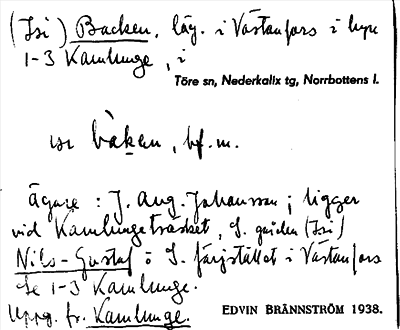 (Isi) Backen, läg. i Västanfors i byn
1-3 Kamlunge, i
Töre sn, Nederkalix tg, Norrbottens l.
bàken, bf. m.
Ägare: J. Aug. Johansson; ligger
vid Kamlungeträsket, S. gården (Isi)
Nils-Gustaf i S. färjstället i Västanfors
Se 1-3 Kamlunge.
Uppg. fr. Kamlunge.
EDVIN BRÄNNSTRÖM 1938.